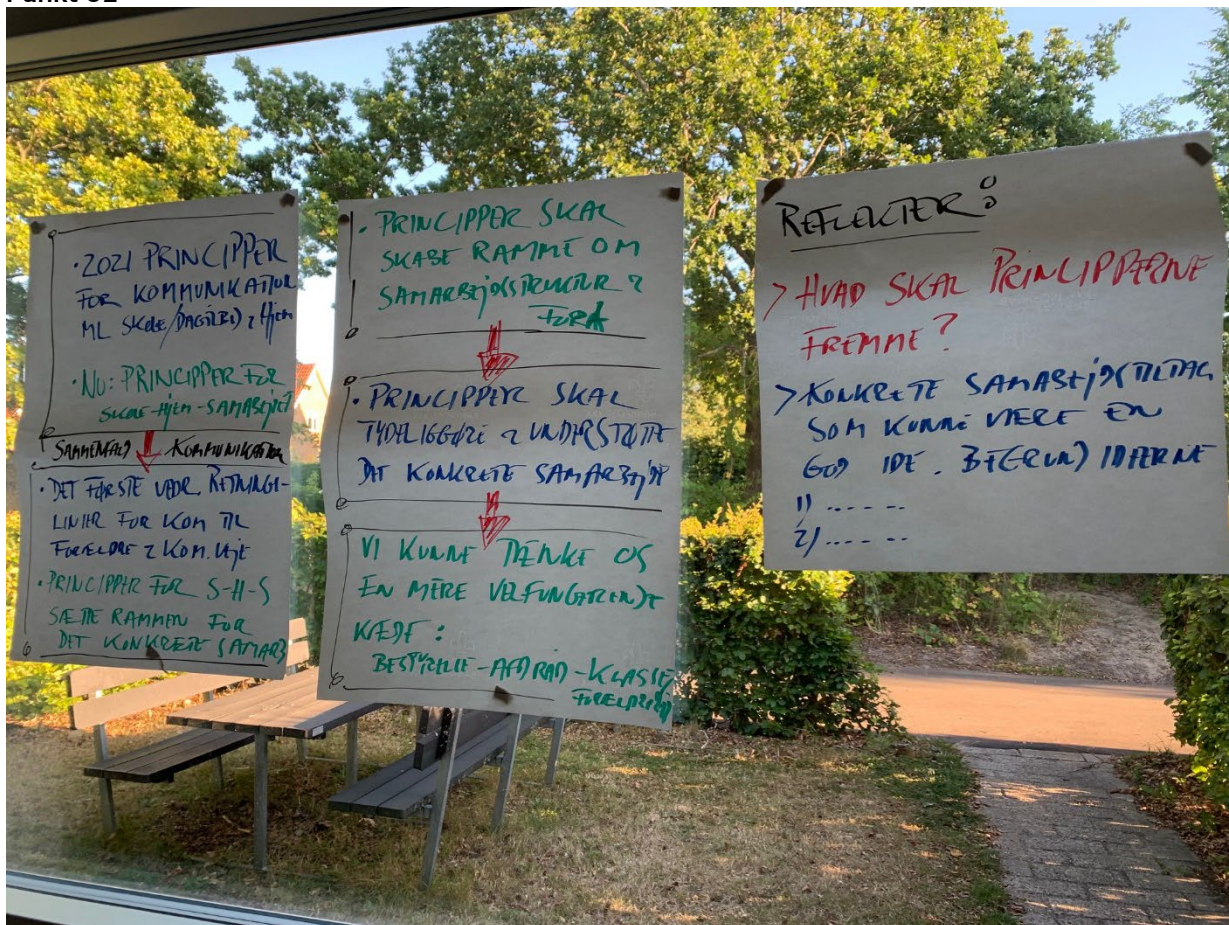 · 2021 PRINCIPPER
FOR KOMMUNIKATION
ML SKOLE/DAGTILBUD & HJEM
· NU: PRINCIPPER FOR
SKOLE-HJEM-SAMARBEJDET
SAMMENFALD KOMMUNIKATION
· DET FØRSTE VEDR. RETNINGS-
LINIER FOR KOM TIL
FORÆLDRE & KOM.VEJE
· PRINCIPPER FOR S-H-S
SÆTTE RAMMEN FOR
DET KONKRETE SAMARB
· PRINCIPPER SKAL
SKABE RAMME OM
SAMARBEJDSSTRUKTUR &
· PRINCIPPER SKAL
TYDELIGGØRE & UNDERSTØTTE
DET KONKRETE SAMARBEJDE
VI KUNNE TÆNKE OS
EN MERE VELFUNGERENDE
KÆDE:
BESTYRELSE - AFD RÅD - KLASSE
REFLEKTER:
> HVAD SKAL PRINCIPPERNE
FREMME?
> KONKRETE SAMARBEJDSTILTAG
SOM KUNNE VÆRE EN
GOD IDE. BEGRUND IDEERNE
1) ......
2) ......